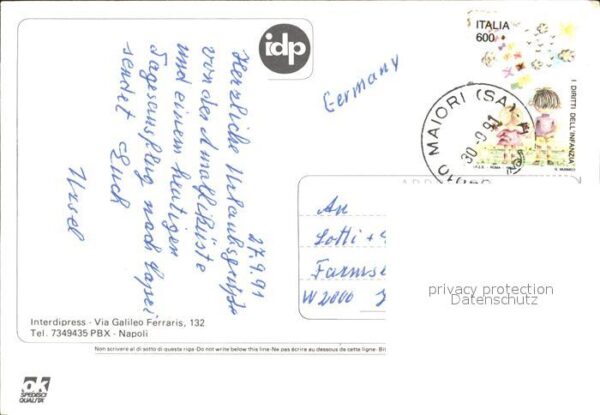 idp
ITALIA
600
I DIRITTI DELL'INFANZIA
I.P.Z.S. - ROMA
MAIORI (SA)
30-9.91
Germany
27.9.91
Herzliche Urlaubsgrüße
von der Amalfiküste
und einem heutigen
Tagesausflug nach Capri
sendet Euch
Ursel
An
Lotti +
W 2000
privacy protection
Datenschutz
Interdipress - Via Galileo Ferraris, 132
Tel. 7349435 PBX - Napoli
Non scrivere al di sotto di questa riga-Do not write below this line-Ne pas écrire au dessous de cette ligne
ok
SPEDISCI
QUALITA'